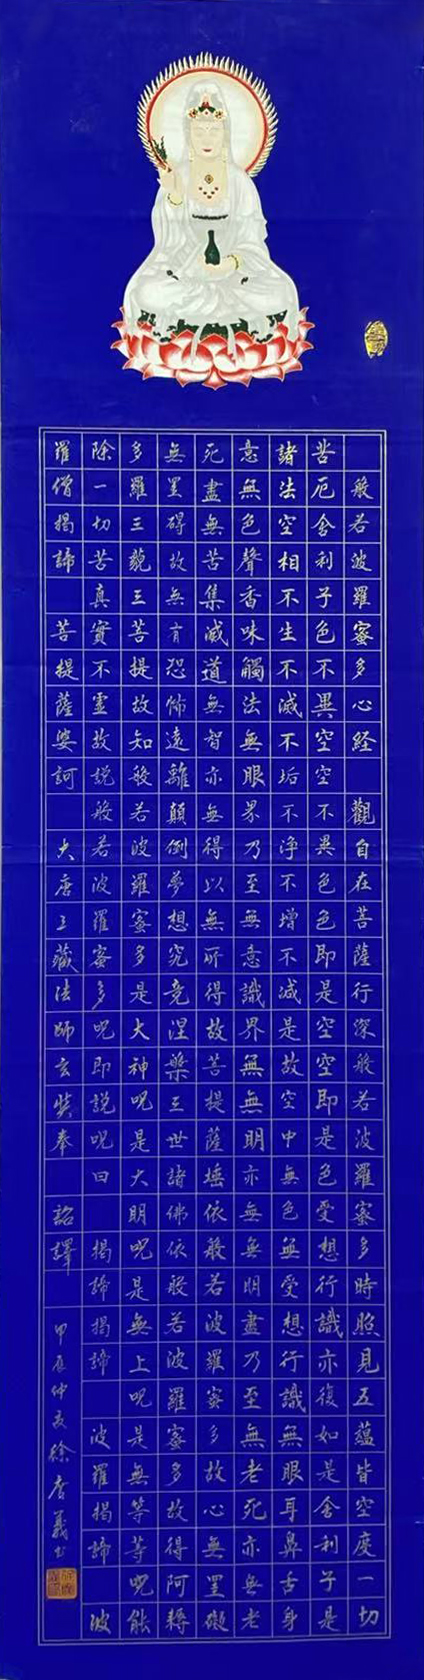 般若波羅蜜多心経 觀自在菩薩行深般若波羅蜜多時照見五蘊皆空度一切
苦厄舍利子色不異空空不異色色即是空空即是色受想行識亦復如是舍利子是
諸法空相不生不滅不垢不淨不增不減是故空中無色無受想行識無眼耳鼻舌身
意無色聲香味觸法無眼界乃至無意識界無無明亦無無明盡乃至無老死亦無老
死盡無苦集滅道無智亦無得以無所得故菩提薩埵依般若波羅蜜多故心無罣礙
無罣碍故無有恐怖遠離顛倒夢想究竟涅槃三世諸佛依般若波羅蜜多故得阿耨
多羅三藐三菩提故知般若波羅蜜多是大神呪是大明呪是無上呪是無等等呪能
除一切苦真實不虛故説般若波羅蜜多呪即説呪曰 揭諦揭諦 波羅揭諦 波
羅僧揭諦 菩提薩婆訶 大唐三藏法師玄奘奉 詔譯
甲辰仲夏徐義书